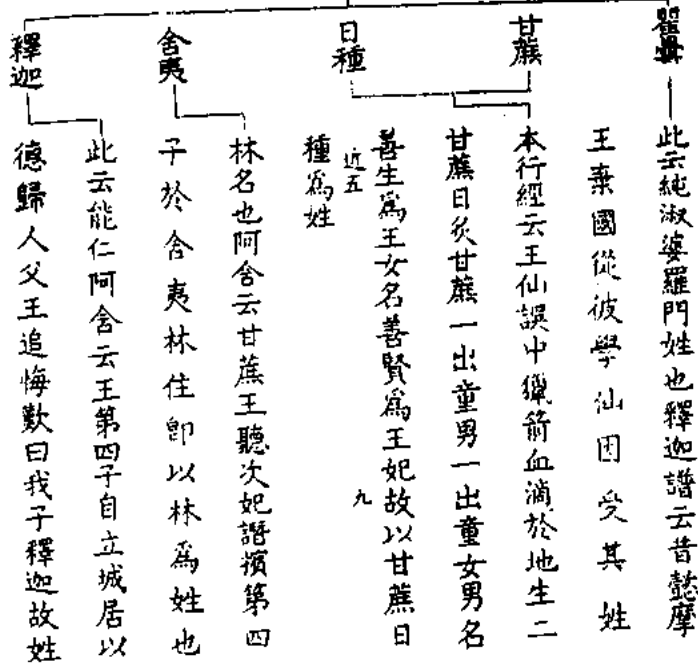 瞿曇
此云純淑婆羅門姓也釋迦譜云昔懿摩
王棄國從彼學仙因受其姓
甘蔗
日種
本行經云王仙誤中獵箭血滴於地生二
甘蔗日炙甘蔗一出童男一出童女男名
善生爲王女名善賢爲王妃故以甘蔗日
近五
九
種爲姓
舍夷
林名也阿含云甘蔗王聽次妃譖擯第四
子於舍夷林住卽以林爲姓也
釋迦
此云能仁阿含云王第四子自立城居以
德歸人父王追悔歎曰我子釋迦故姓